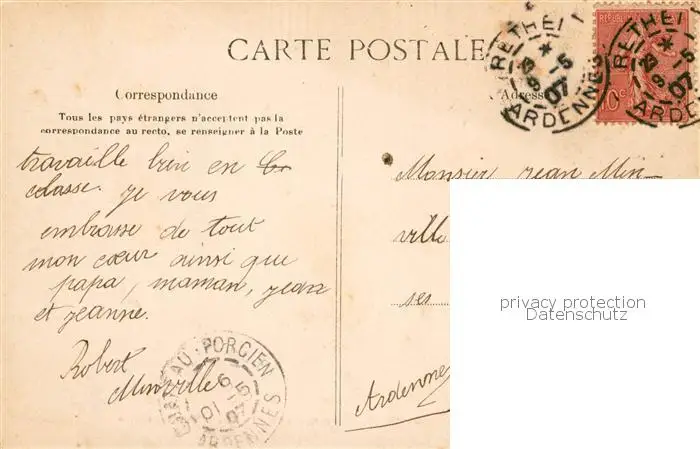 CARTE POSTALE
Correspondance
Tous les pays étrangers n'acceptent pas la
correspondance au recto, se renseigner à la Poste
travaille bien en
classe. je vous
embrasse de tout
mon cœur ainsi que
papa, maman, jean
et jeanne.
Robert
Minville
PORCIEN
ARDENNES
Adresse
RETHEL
ARDENNES
07
10c
RETHEL
ARDENNES
07
Monsieur jean Min-
ville
ses
Ardennes
privacy protection
Datenschutz